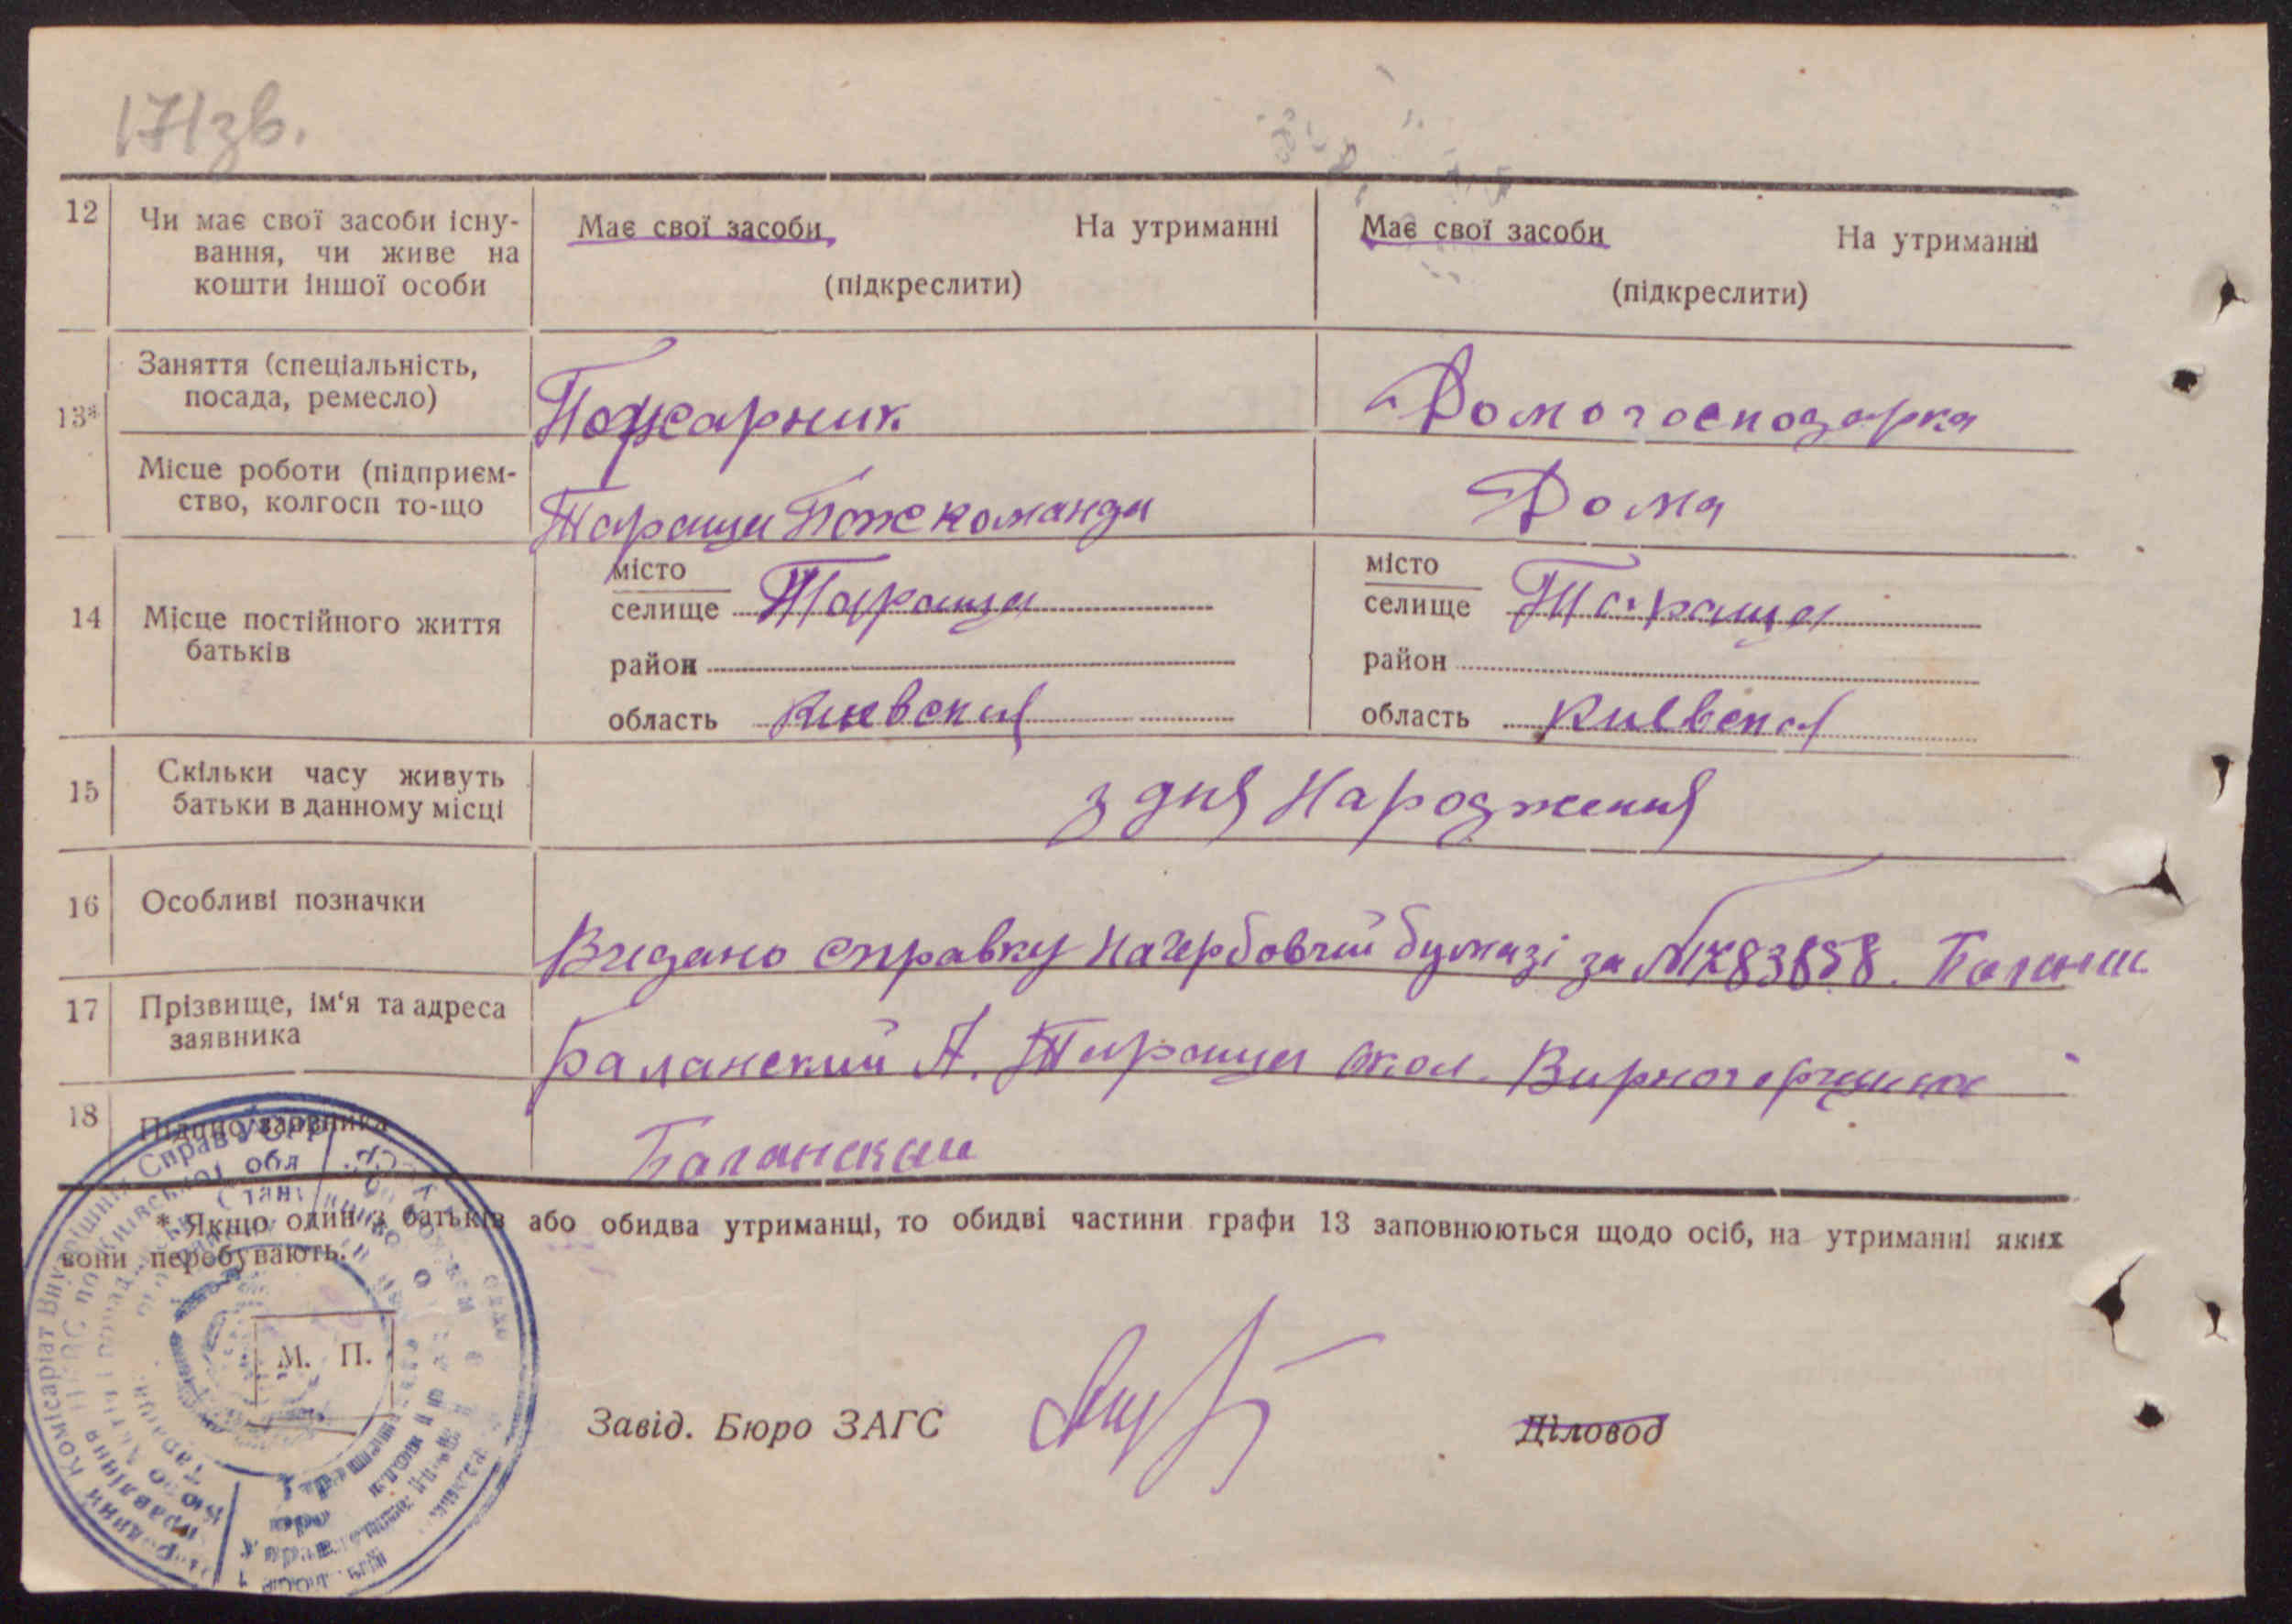 171зв.
12 Чи має свої засоби існу-
вання, чи живе на
кошти іншої особи
Має свої засоби, На утриманні
(підкреслити)
Має свої засоби На утриманні
(підкреслити)
13*
Заняття (спеціальність,
посада, ремесло)
Пожарник
Домогосподарка
Місце роботи (підприєм-
ство, колгосп то-що
Тараща Пожкоманда
Дома
14 Місце постійного життя
батьків
місто
селище Тараща
район
область Киевская
місто
селище Тараща
район
область Киевская
15 Скільки часу живуть
батьки в данному місці
з дня Народження
16 Особливі позначки
Видано справку на гербовчій бумазі за № 83858.
17 Прізвище, ім'я та адреса
заявника
Баланский А. Тараща
18 Підпис заявника
Баланский
* Якщо один з батьків або обидва утриманці, то обидві частини графи 13 заповнюються щодо осіб, на утриманні яких
вони перебувають.
М. П.
Завід. Бюро ЗАГС
Діловод